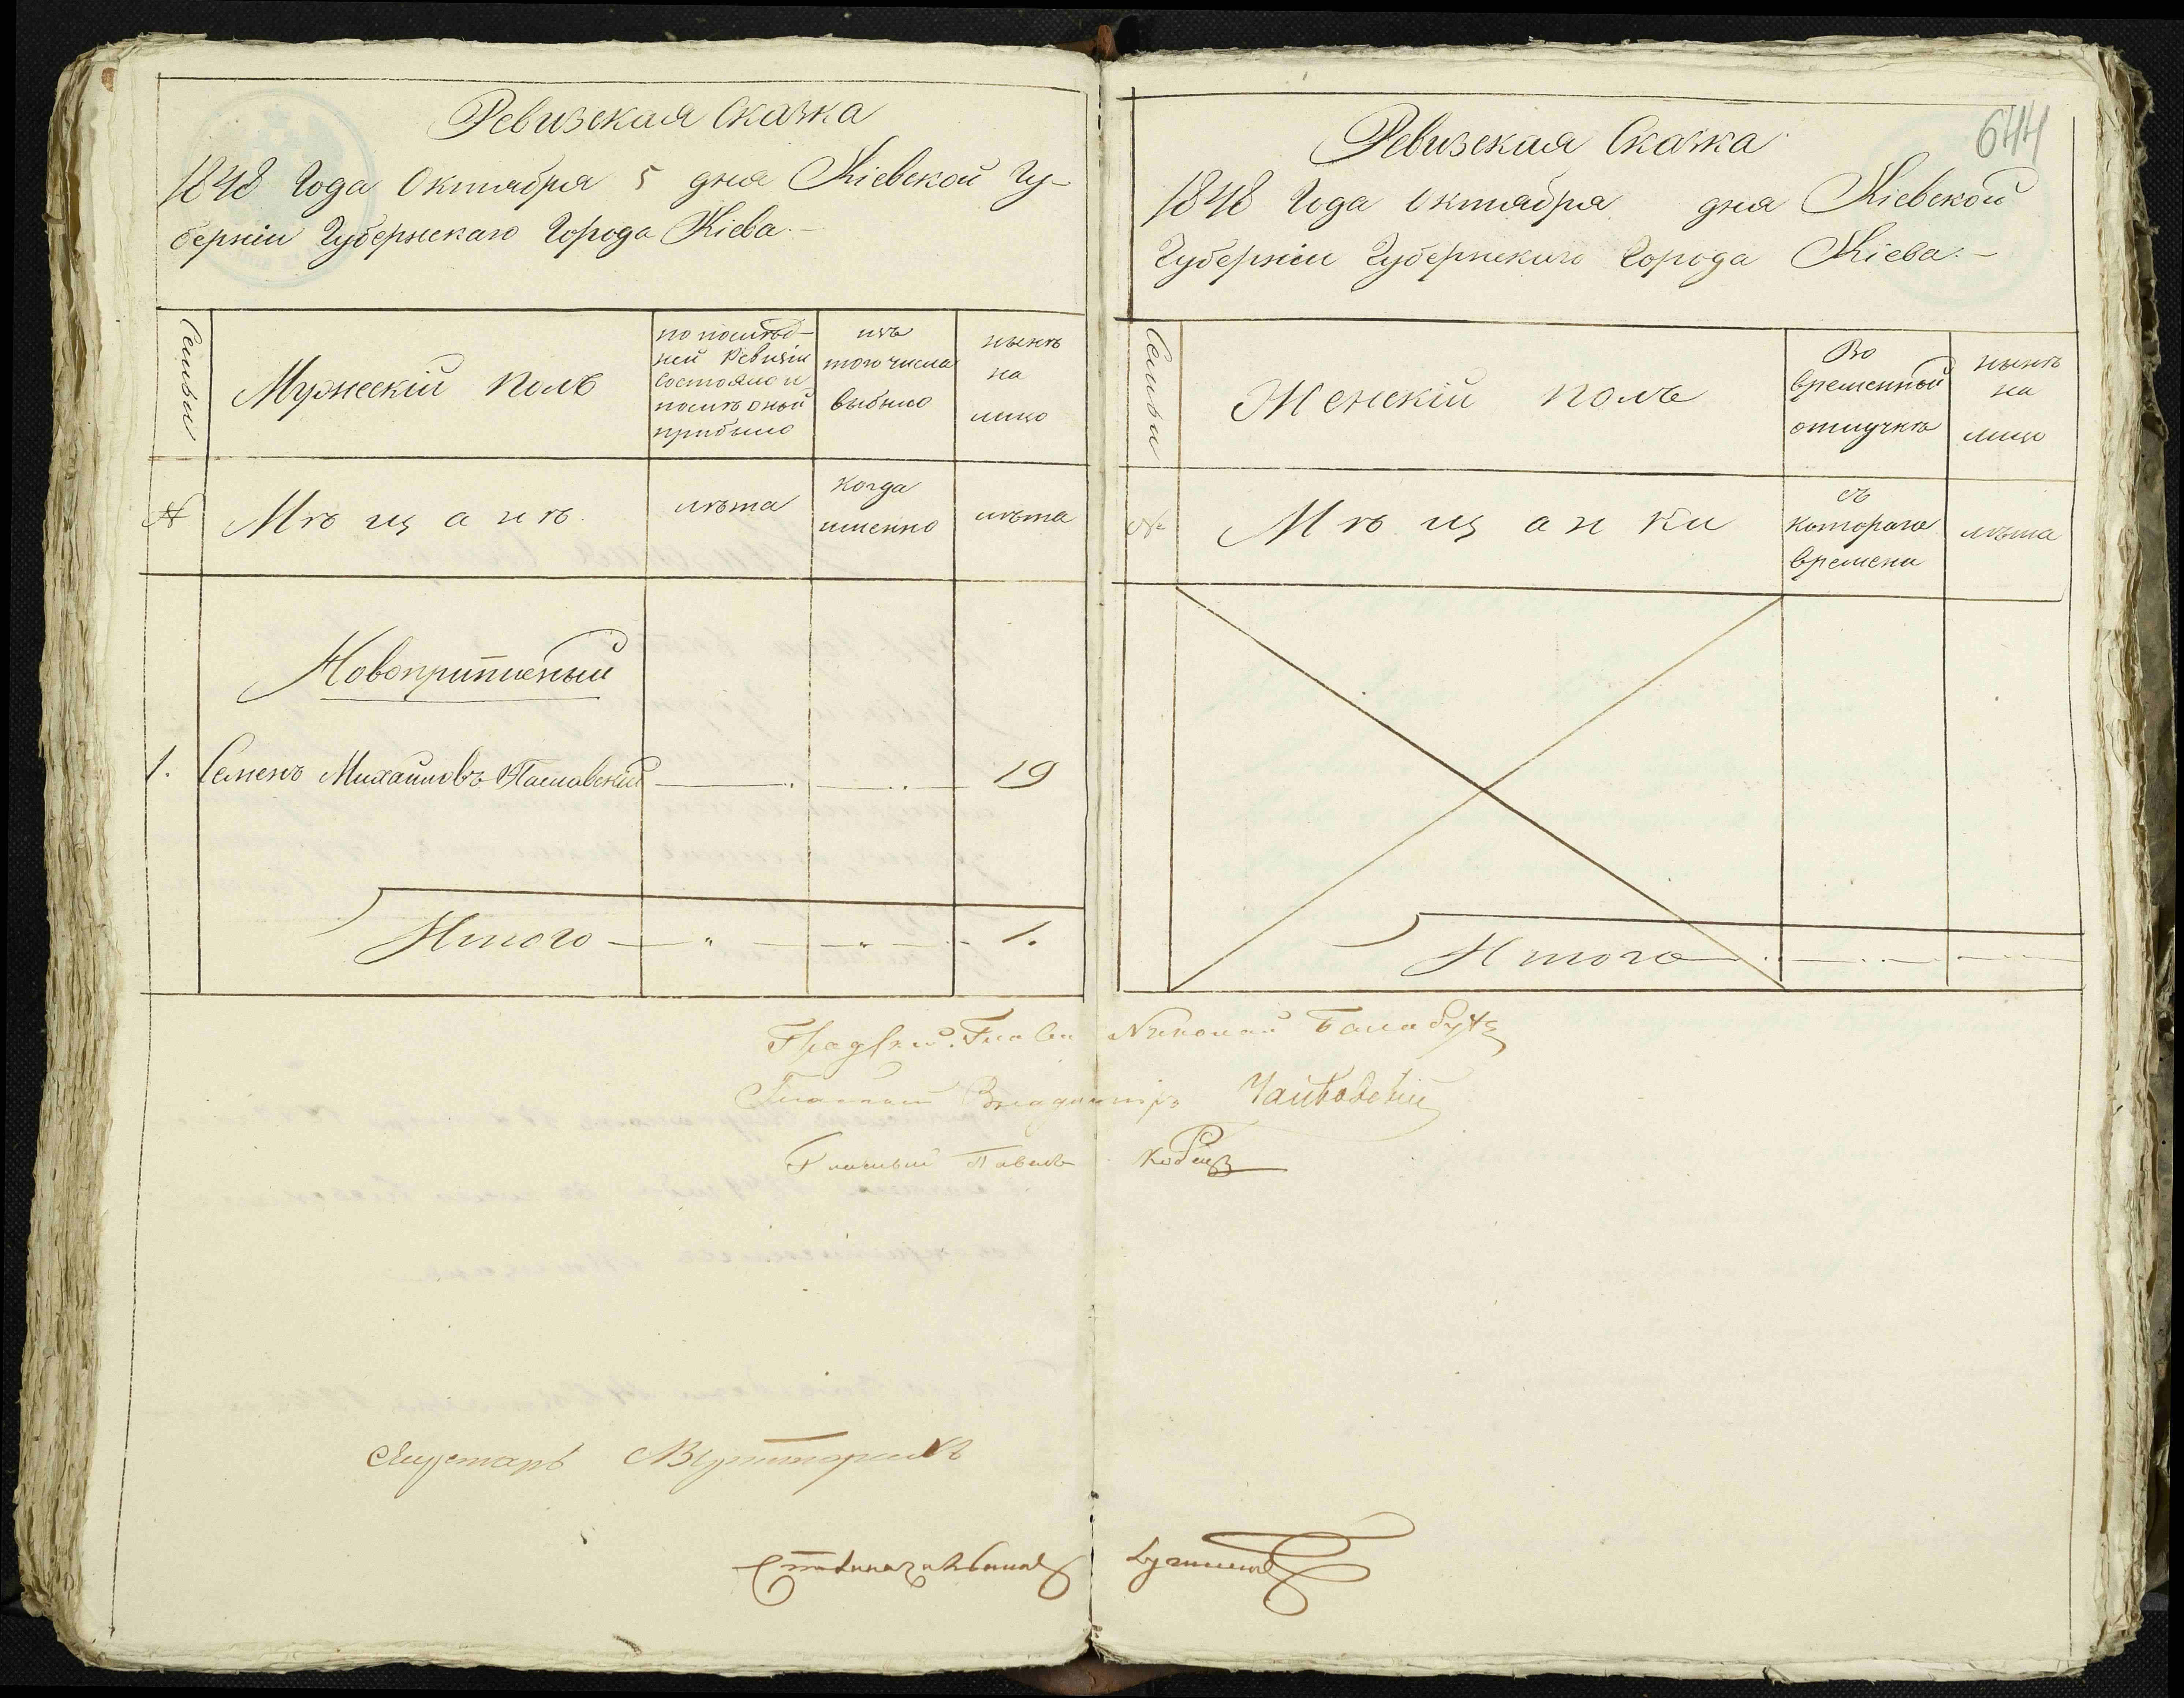 Ревизская Сказка
1848 Года Октября 5 дня Кіевской Гу-
берніи Губернскаго Города Кіева.-
Семьи
Мужескій полъ
по послѣд-
ней Ревизіи
состояло и
послѣ оной
прибыло
изъ
того числа
выбыло
нынѣ
на
лицо
№
Мѣщанъ.
лѣта
когда
именно
лѣта
Новоприписный
1. Семенъ Михайловъ Паславскій 19
Итого — „ — „ — 1.
644
Ревизская Сказка
1848 Года Октября дня Кіевской
Губерніи Губернскаго Города Кіева.-
Семьи
Женскій полъ
Во
временной
отлучкѣ
нынѣ
на
лицо
№
Мѣщанки
съ
котораго
времени
лѣта
Итого
Градской Глава Николай Балабуха
Гласный Владимиръ Чайковскій
Гласный Павелъ